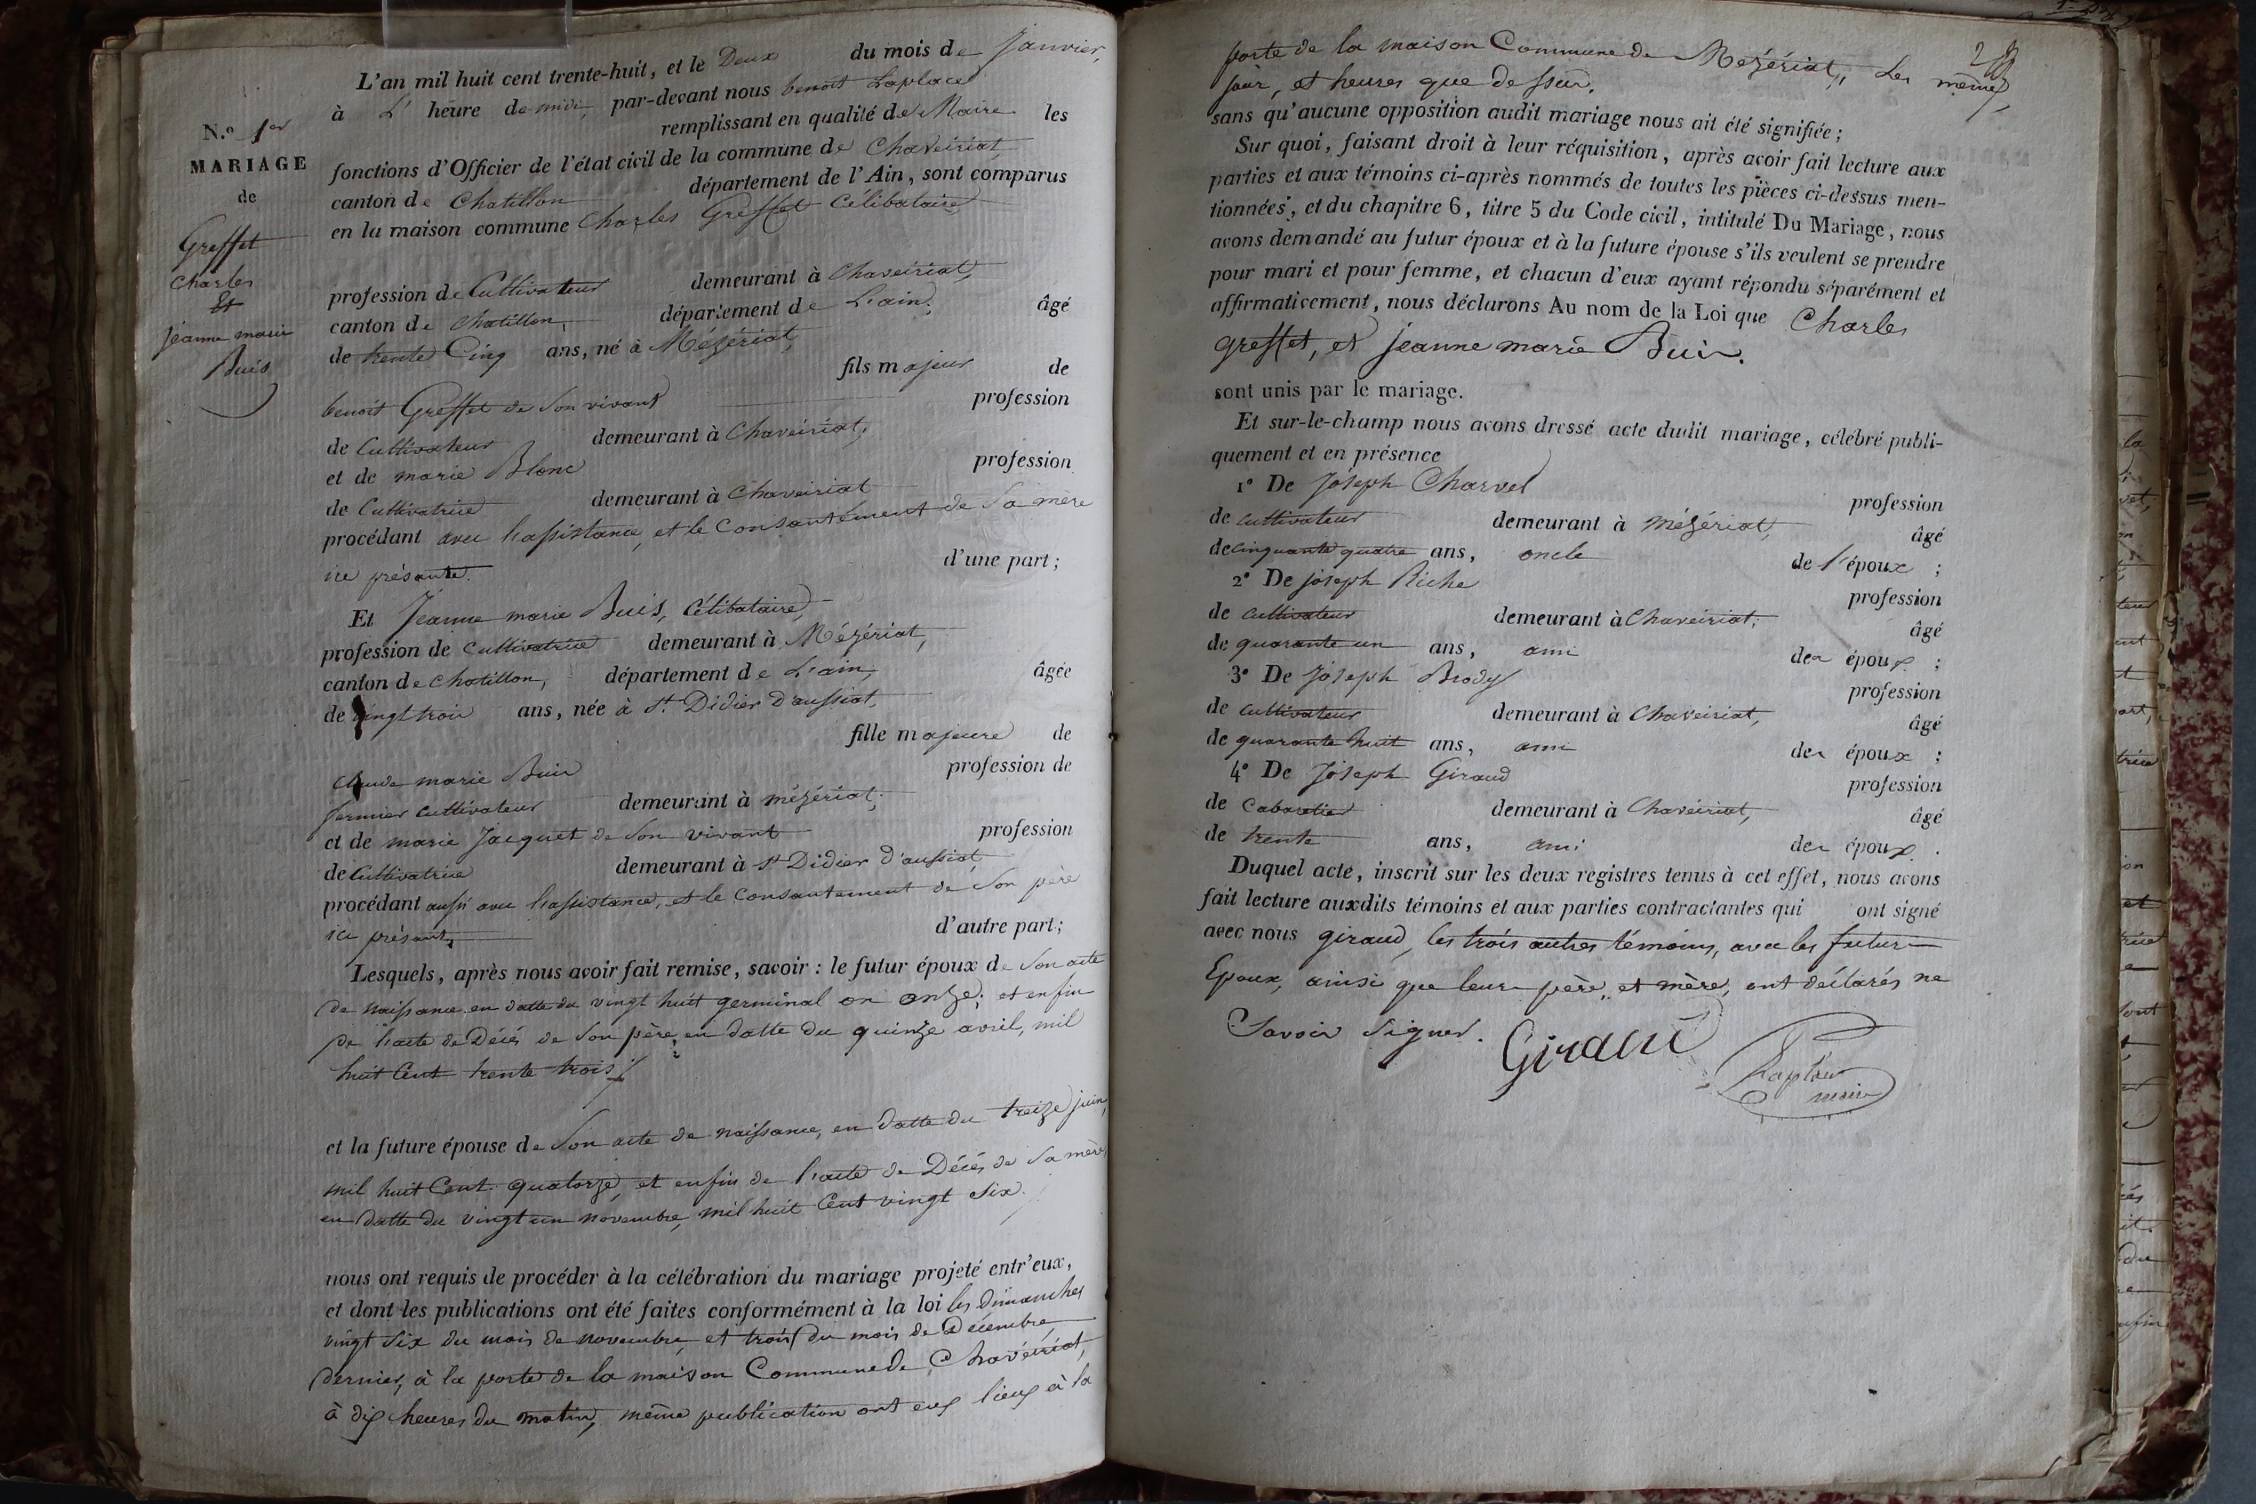 N.º 1er
MARIAGE
de
Greffet
Charles
Et
jeanne marie
Buis
L'an mil huit cent trente-huit, et le Deux du mois de janvier,
à L' heure de midi, par-devant nous benoit Laplace
remplissant en qualité de Maire les
fonctions d'Officier de l'état civil de la commune de Chaveiriat,
canton de Chatillon département de l'Ain, sont comparus
en la maison commune Charles Greffet Célibataire,
profession de Cultivateur demeurant à Chaveiriat,
canton de Chatillon, département de L'ain, âgé
de trente Cinq ans, né à Mézériat,
fils majeur de
benoit Greffet de son vivant profession
de Cultivateur demeurant à Chaveiriat,
et de marie Blanc profession
de Cultivatrice demeurant à Chaveiriat
procédant avec l'assistance, et le Consantement de Sa mère
ice présante. d'une part;
Et Jeanne marie Buis, Célibataire,
profession de Cultivatrice demeurant à Mézériat,
canton de Chatillon, département de L'ain, âgée
de vingt trois ans, née à St. Didier d'aussiat,
fille majeure de
Claude marie Buis profession de
fermier Cultivateur demeurant à mézériat,
et de marie Jacquet de Son vivant profession
de Cultivatrice demeurant à St Didier d'aussiat,
procédant aussi avec l'assistance, et le Consantement de Son père
ici présant, d'autre part;
Lesquels, après nous avoir fait remise, savoir : le futur époux de Son acte
de naissance en datte du vingt huit germinal an onze; et enfin
de l'acte de Décès de Son père, en datte du quinze avril, mil
huit Cent trente trois
et la future épouse de Son acte de naissance, en datte du treize juin,
mil huit Cent quatorze, et enfin de l'acte de Décès de Sa mère,
en datte du vingt un novembre, mil huit Cent vingt Six.
nous ont requis de procéder à la célébration du mariage projeté entr'eux,
et dont les publications ont été faites conformément à la loi les Dimanches
vingt Six du mois de novembre, et trois du mois de Décembre,
dernier, à la porte de la maison Commune de Chavéiriat,
à dix heures du matin, même publication ont eux lieux à la
porte de la maison Commune de Mézériat, Les mêmes
jour, et heures que dessus.
sans qu'aucune opposition audit mariage nous ait été signifiée;
Sur quoi, faisant droit à leur réquisition, après avoir fait lecture aux
parties et aux témoins ci-après nommés de toutes les pièces ci-dessus men-
tionnées, et du chapitre 6, titre 5 du Code civil, intitulé Du Mariage, nous
avons demandé au futur époux et à la future épouse s'ils veulent se prendre
pour mari et pour femme, et chacun d'eux ayant répondu séparément et
affirmativement, nous déclarons Au nom de la Loi que Charles
greffet, et jeanne marie Buis.
sont unis par le mariage.
Et sur-le-champ nous avons dressé acte dudit mariage, célébré publi-
quement et en présence
1º De Joseph Charvet profession
de cultivateur demeurant à Mézériat, âgé
de cinquante quatre ans, oncle de l'époux ;
2º De joseph Riche profession
de cultivateur demeurant à Chaveiriat, âgé
de quarante un ans, ami des époux ;
3º De Joseph Brody profession
de cultivateur demeurant à Chaveiriat, âgé
de quarante huit ans, ami des époux ;
4º De Joseph Giraud profession
de Cabaretier demeurant à Chaveiriat, âgé
de trente ans, ami des époux .
Duquel acte, inscrit sur les deux registres tenus à cet effet, nous avons
fait lecture auxdits témoins et aux parties contractantes qui ont signé
avec nous giraud, les trois autres témoins, avec les futurs
Epoux, ainsi que leurs père, et mère, ont déclarés ne
Savoir Signer. Giraud
Laplace
maire